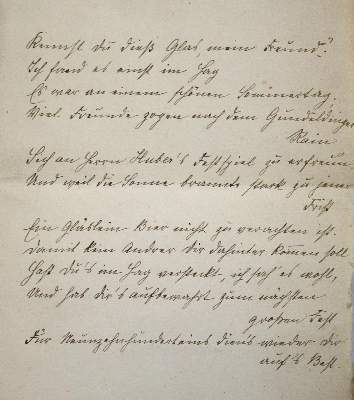 Kennst du dieß Glas, mein Freund?
Ich fand es einst im Hag
Es war an einem schönen Sommertag,
Viel Freunde zogen nach dem Gundeldinger
Rain
Sich an Herrn Huber's Festspiel zu erfreun
Und weil die Sonne brannte stark zu jener
Frist
Ein Gläslein Bier nicht zu verachten ist.
Damit kein Andrer dir dahinter kommen soll
Hast Du's im Hag versteckt, ich sah es wohl,
Und hab dir's aufbewahrt zum nächsten
großen Fest
Für Neunzehnhunderteins dien's wieder dir
auf's Best.